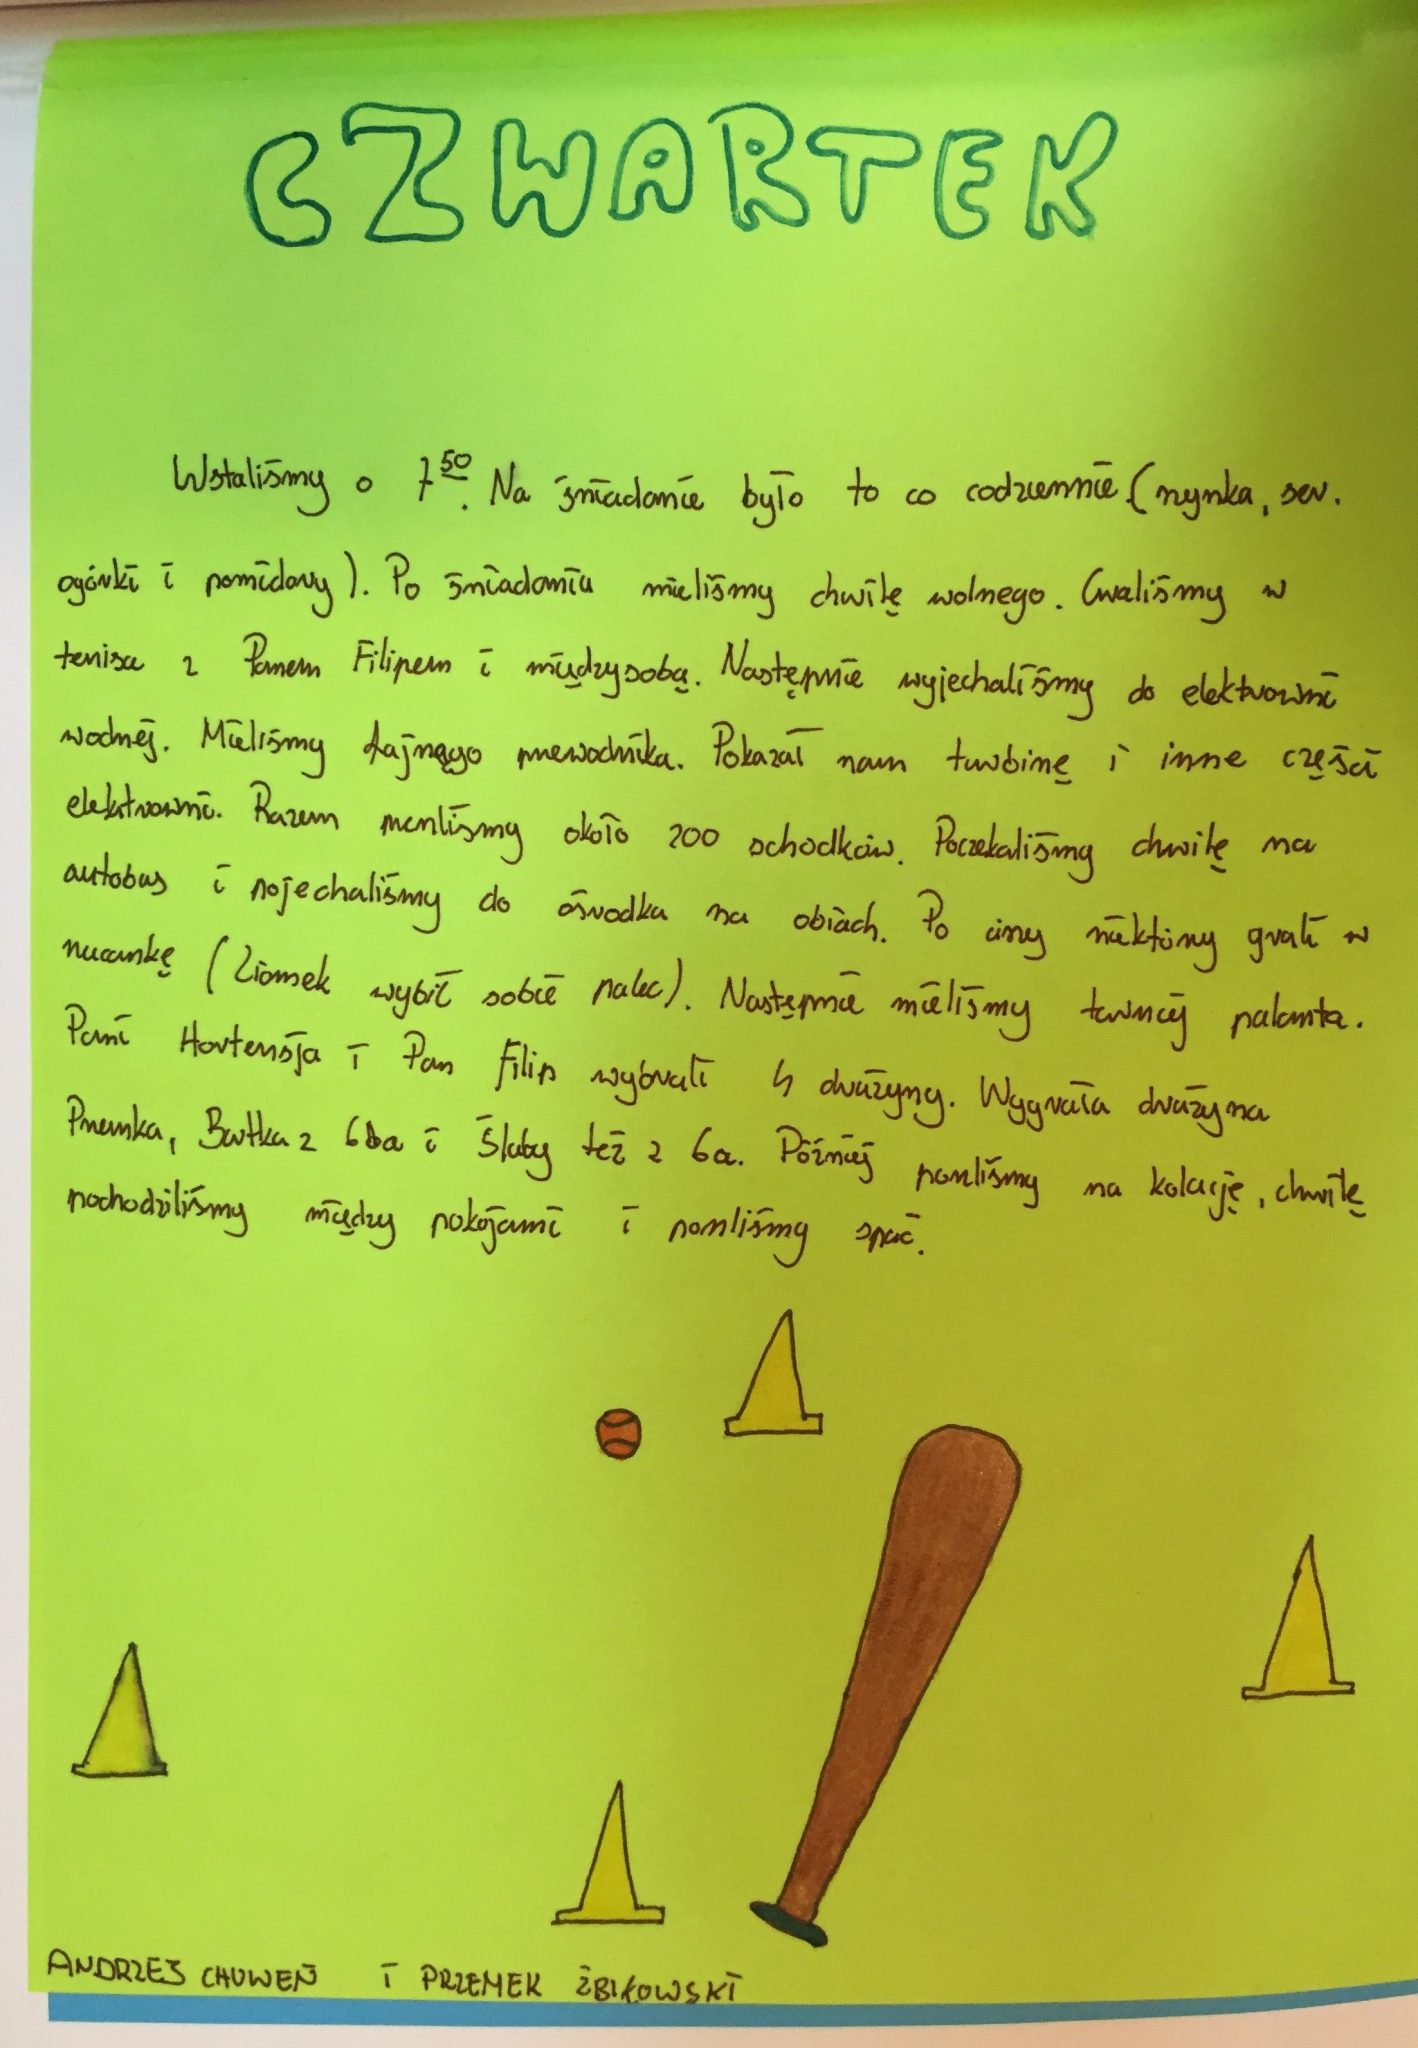 CZWARTEK
Wstaliśmy o 7⁵⁰. Na śniadanie było to co codziennie (szynka, ser,
ogórki i pomidory). Po śniadaniu mieliśmy chwilę wolnego. Graliśmy w
tenisa z Panem Filipem i międzysobą. Następnie wyjechaliśmy do elektrowni
wodnej. Mieliśmy fajnego przewodnika. Pokazał nam turbinę i inne części
elektrowni. Razem przeszliśmy około 200 schodków. Poczekaliśmy chwilę na
autobus i pojechaliśmy do ośrodka na obiach. Po ciszy niektórzy grali w
rzucankę (Ziomek wybił sobie palec). Następnie mieliśmy turniej palanta.
Pani Hortensja i Pan Filip wybrali 4 drużyny. Wygrała drużyna
Przemka, Bartka z 6a i Słaby też z 6a. Później poszliśmy na kolację, chwilę
pochodziliśmy między pokojami i poszliśmy spać.
ANDRZEJ CHUWEŃ I PRZEMEK ŻBIKOWSKI